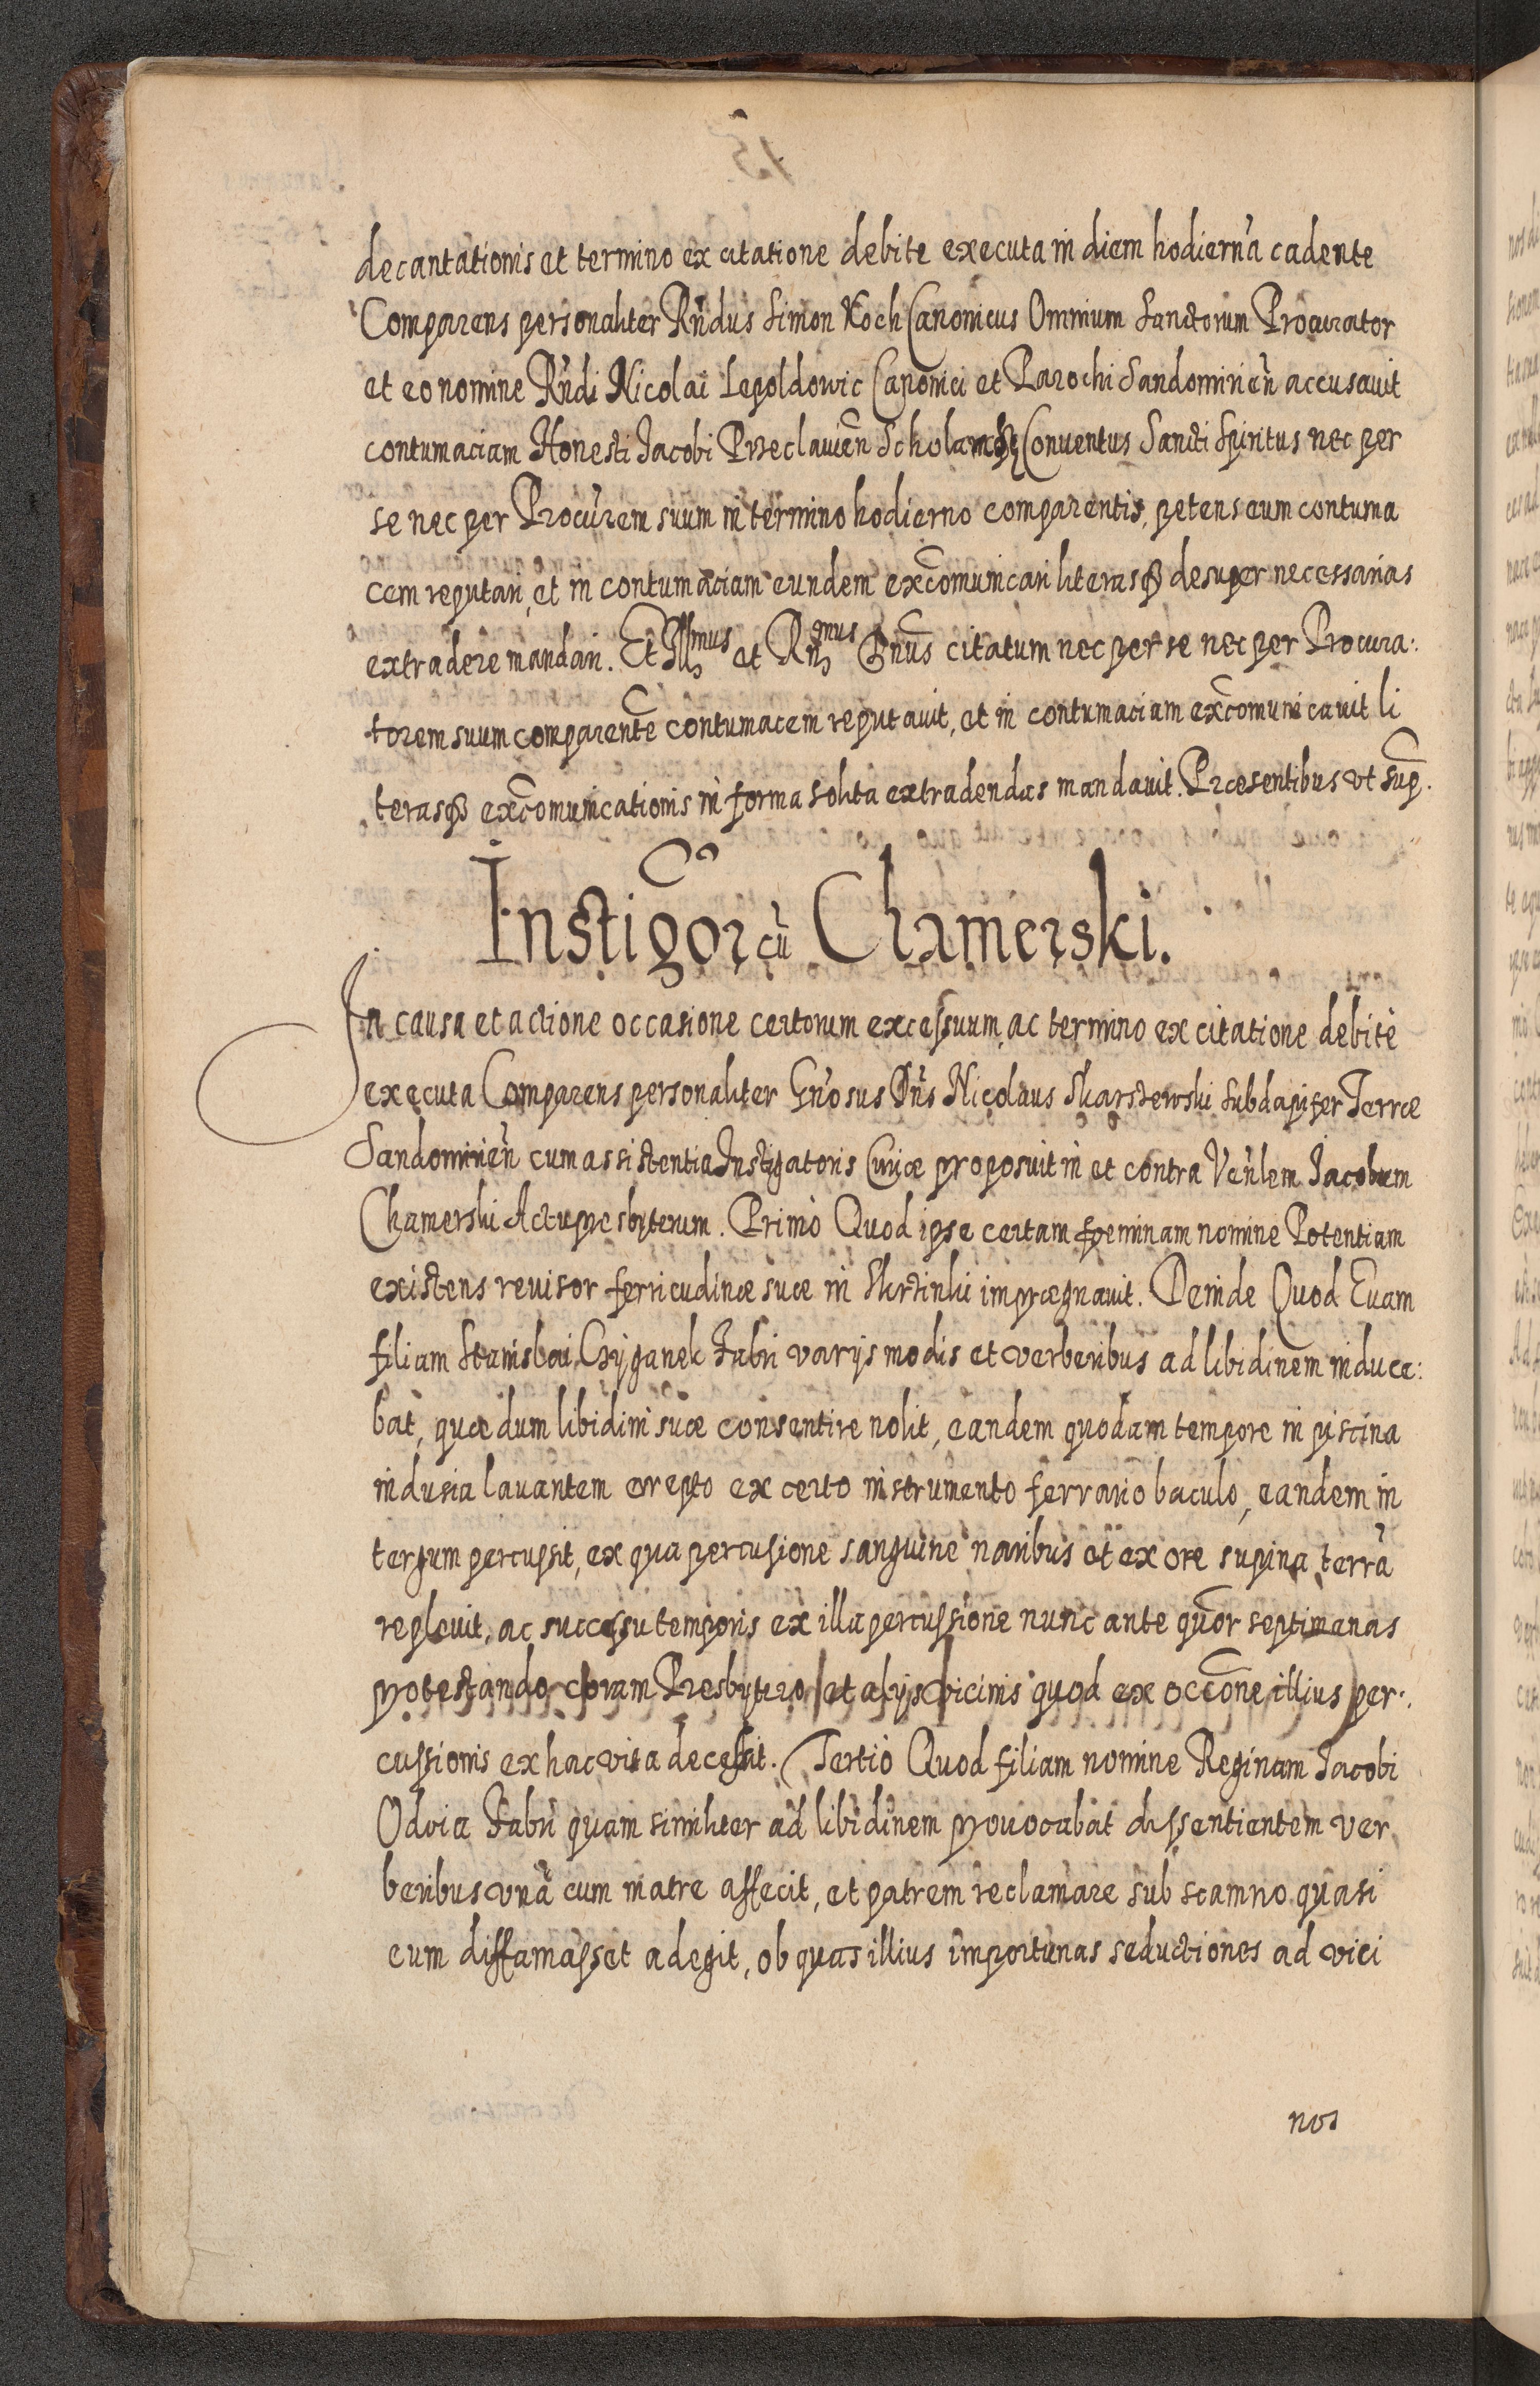 decantationis et termino ex citatione debite executa in diem hodiernã cadente
Comparens personaliter Rñdus Simon Koch Canonicus Omnium Sanctorum Procurator
et eo nomine Rñdi Nicolai Lepoldowic Canonici et Parochi Sandomirieñ accusauit
contumaciam Honesti Jacobi Przeclauien Conuentus Sancti Spiritus nec per
se nec per Procurem suum in termino hodierno comparentis, petens eum contuma
cem reputari, et in contumaciam eundem excõmunicari literasq desuper necessarias
extradere mandari. Et Illmus et Rñmus Dñus citatum nec per se nec per Procura:
torem suum comparentẽ contumacem reputauit, et in contumaciam excõmunicauit li
terasq excõmunicationis in forma solita extradendas mandauit. Præsentibus vt sup.
Instigõr cũ Chamerski.
In causa et actione occasione certorum excessuum, ac termino ex citatione debitè
executa Comparens personaliter Gñosus Dñs Nicolaus Skarszewski Subdapifer Terræ
Sandomirieñ cum assistentia Instigatoris Curiæ proposuit in et contra Veñlem Jacobum
Chamerski Actupresbyterum. Primò Quod ipse certam fœminam nomine Potentiam
existens reuisor ferricudinæ suæ in imprægnauit. Deinde Quod Euam
filiam Stanislai Czyganek Fabri varijs modis et verberibus ad libidinem induce:
bat, quæ dum libidini suæ consentire nolit, eandem quodam tempore in piscina
indusia lauantem erepto ex certo instrumento ferrario baculo, eandem in
tergum percussit, ex qua percusione sanguine naribus et ex ore supina terrã
repleuit, ac successu temporis ex illa percussione nunc ante quõr septimanas
protestando coram Presbytero et alijs vicinis quod ex occõne illius per:
cussionis ex hac vita decessit. Tertiò Quod filiam nomine Reginam Jacobi
Odoia Fabri quam similiter ad libidinem prouocabat dissentientem ver
beribus vnà cum matre affecit, et patrem reclamare sub scamno quasi
eum diffamasset adegit, ob quas illius importunas seductiones ad vici
nos